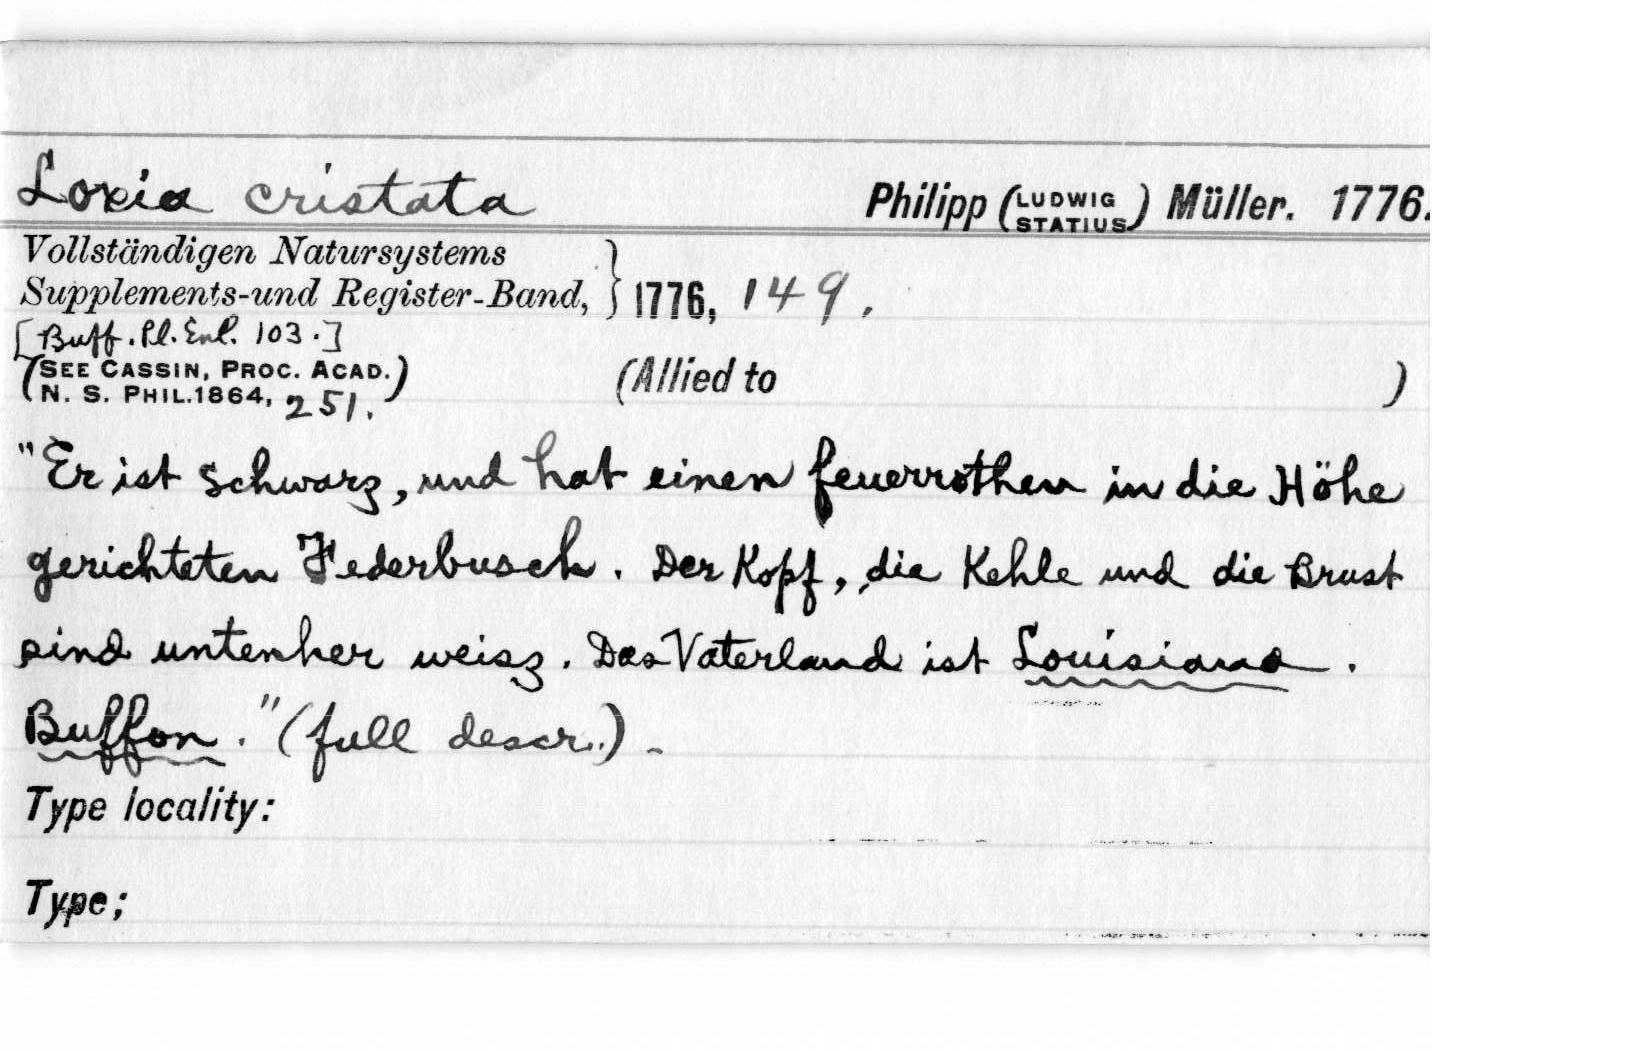 Loxia cristata Philipp (LUDWIG STATIUS) Müller. 1776.
Vollständigen Natursystems
Supplements-und Register-Band, } 1776, 149.
[Buff. Pl. Enl. 103.]
(SEE CASSIN, PROC. ACAD.
N. S. PHIL. 1864, 251.) (Allied to )
"Er ist schwarz, und hat einen feuerrothen in die Höhe
gerichteten Federbusch. Der Kopf, die Kehle und die Brust
sind untenher weisz. Das Vaterland ist Louisiana.
Buffon." (full descr.).
Type locality:
Type;